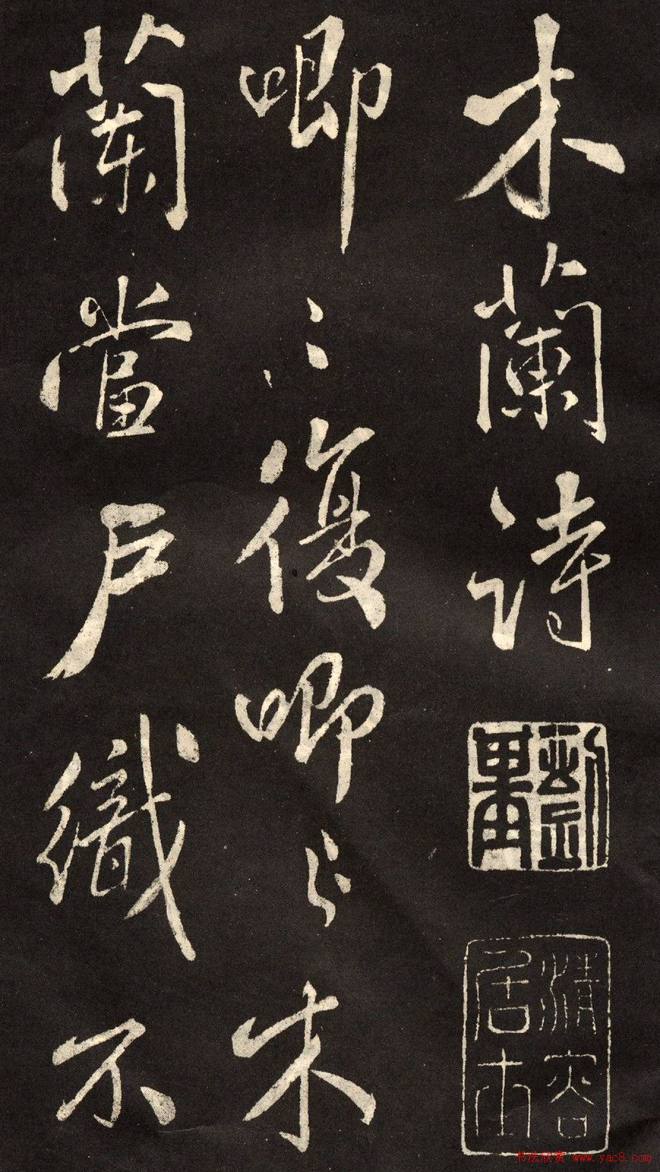 木蘭詩
清容居士
唧々復唧々木
蘭當户織不
书法欣赏 www.yac8.com